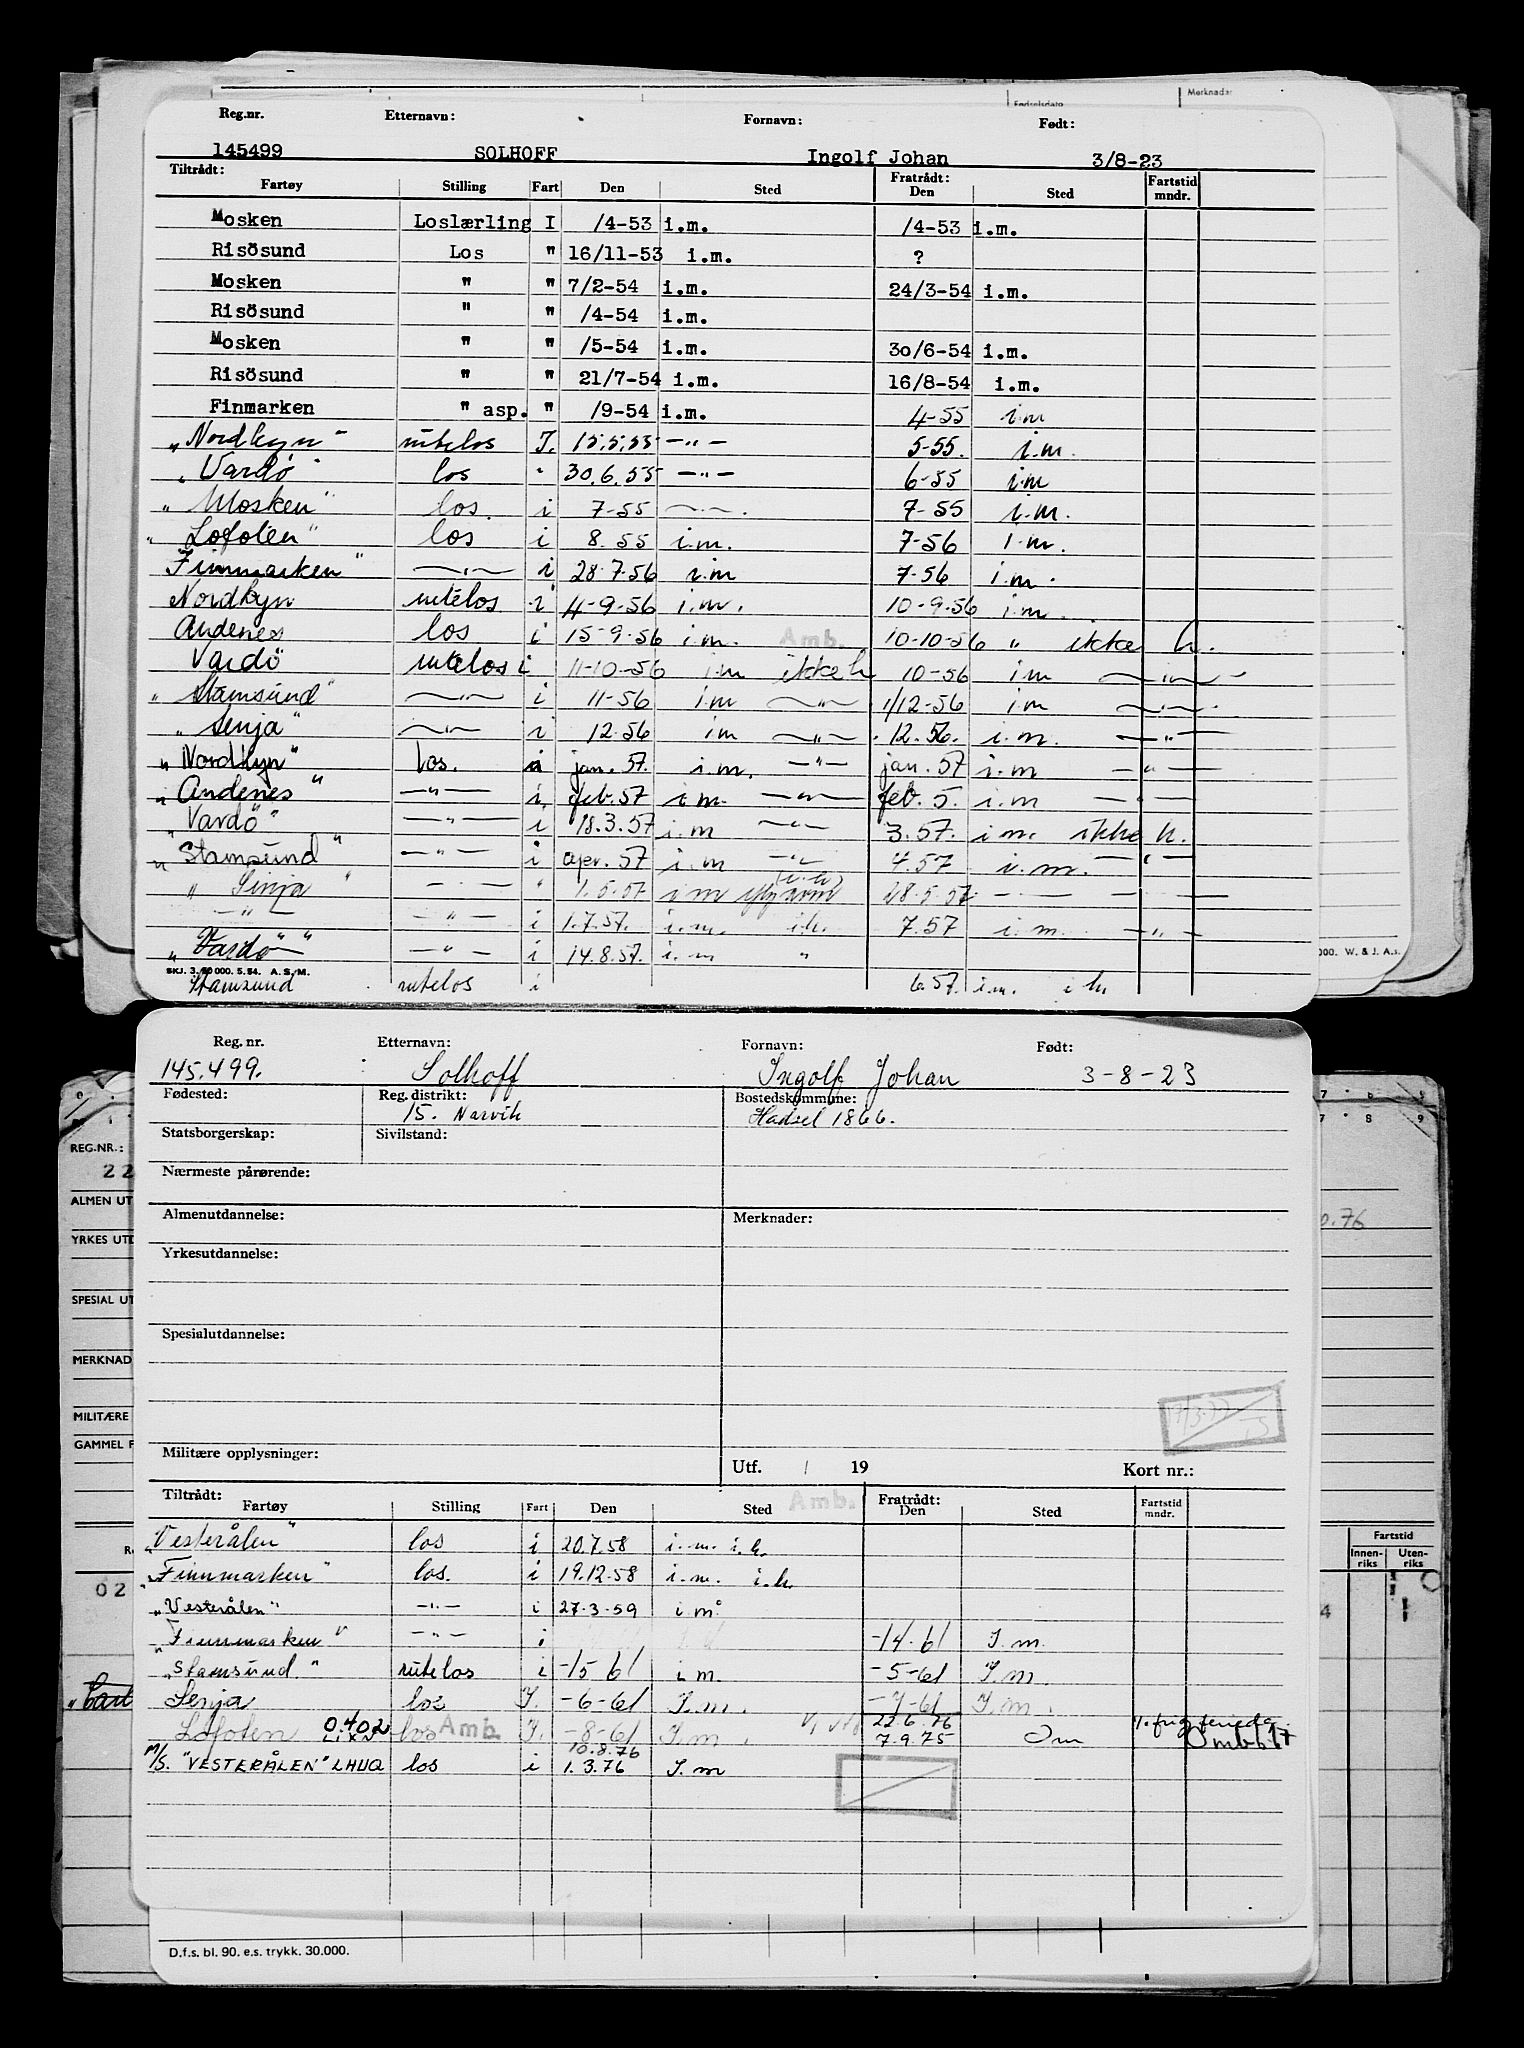 Merknader
Fødselsdato
Reg.nr. Etternavn: Fornavn: Født:
145499 SOLHOFF Ingolf Johan 3/8-23
Tiltrådt: Fratrådt:
Fartøy Stilling Fart Den Sted Den Sted Fartstid mndr.
Mosken Loslærling I /4-53 i.m. /4-53 i.m.
Risösund Los " 16/11-53 i.m. ?
Mosken " " 7/2-54 i.m. 24/3-54 i.m.
Risösund " " /4-54 i.m.
Mosken " " /5-54 i.m. 30/6-54 i.m.
Risösund " " 21/7-54 i.m. 16/8-54 i.m.
Finmarken " asp. " /9-54 i.m. 4-55 i.m
"Nordkyn" rutelos I. 15.5.55 —"— 5-55. i.m.
"Vardö" los " 30.6.55 —"— 6-55 i.m
"Mosken" los. i 7-55 —"— 7-55 i.m.
"Lofoten" los i 8.55 i.m. 7-56 i.m.
Finnmarken" —"— i 28.7.56 i.m 7.56 i.m.
Nordkyn rutelos i 4-9-56 i.m. 10-9-56 i.m.
Andenes los i 15-9-56 i.m. Amb. 10-10-56 " ikke h.
Vardö rutelos i 11-10-56 i.m ikke h 10-56 i.m —"—
"Stamsund" —"— i 11-56 i.m —"— 1/12-56 i.m —"—
"Senja" —"— i 12.56 i.m —"— 12.56. i.m. —"—
"Nordkyn" los. i jan. 57. i.m. —"— jan. 57 i.m —"—
"Andenes" —"— i. feb. 57 i.m. —"— feb. 5. i.m —"—
"Vardö" —"— i 18.3.57 i.m —"— 3.57. i.m. ikke h.
"Stamsund" —"— i apr. 57 i.m —"— 4.57 i.m. —"—
"Senja" —"— " 1.5.57 i.m (i.h) 28.5.57 —"— —"—
—"— —"— i 1.7.57. i.m. i.h. 7.57 i.m. —"—
"Vardö" —"— i 14.8.57. i.m "
SKJ. 3. 50 000. 5. 54. A.S.M. 000. W. & J. A.s.
Stamsund rutelos i 6.57. i.m. i h
Reg. nr. Etternavn: Fornavn: Født:
145.499. Solhoff Ingolf Johan 3-8-23
Fødested: Reg. distrikt: Bostedskommune:
15. Narvik Hadsel 1866.
Statsborgerskap: Sivilstand:
Nærmeste pårørende:
Almenutdannelse: Merknader:
Yrkesutdannelse:
Spesialutdannelse:
Militære opplysninger:
Utf. / 19 Kort nr.:
Tiltrådt: Amb. Fratrådt:
Fartøy Stilling Fart Den Sted Den Sted Fartstid mndr.
"Vesterålen" los i 20.7.58 i.m. i.h.
"Finnmarken" los. i 19.12.58 i.m. i.h.
"Vesterålen" —"— i 27-3-59 i.m.
"Finnmarken" —"— i -14-61 I.m.
"Stamsund." rutelos i -15 61 i m. -5-61 I.m.
Senja los I. -6-61 I.m. -7-61 I.m.
Lofoten 0.402 LIXN los Amb. I. -8-61 I.m. 22.6.76
7.9.75 Om
M/S. "VESTERÅLEN" LHUQ los i 10.8.76 1.3.76 I.m
D.f.s. bl. 90. e.s. trykk. 30.000.
REG.NR.:
22
ALMEN UT
YRKES UTD
SPESIAL UT
MERKNAD
MILITÆRE
GAMMEL F
02
7 8 9
7 8 9
0.76
Fartstid
Innenriks Utenriks
4